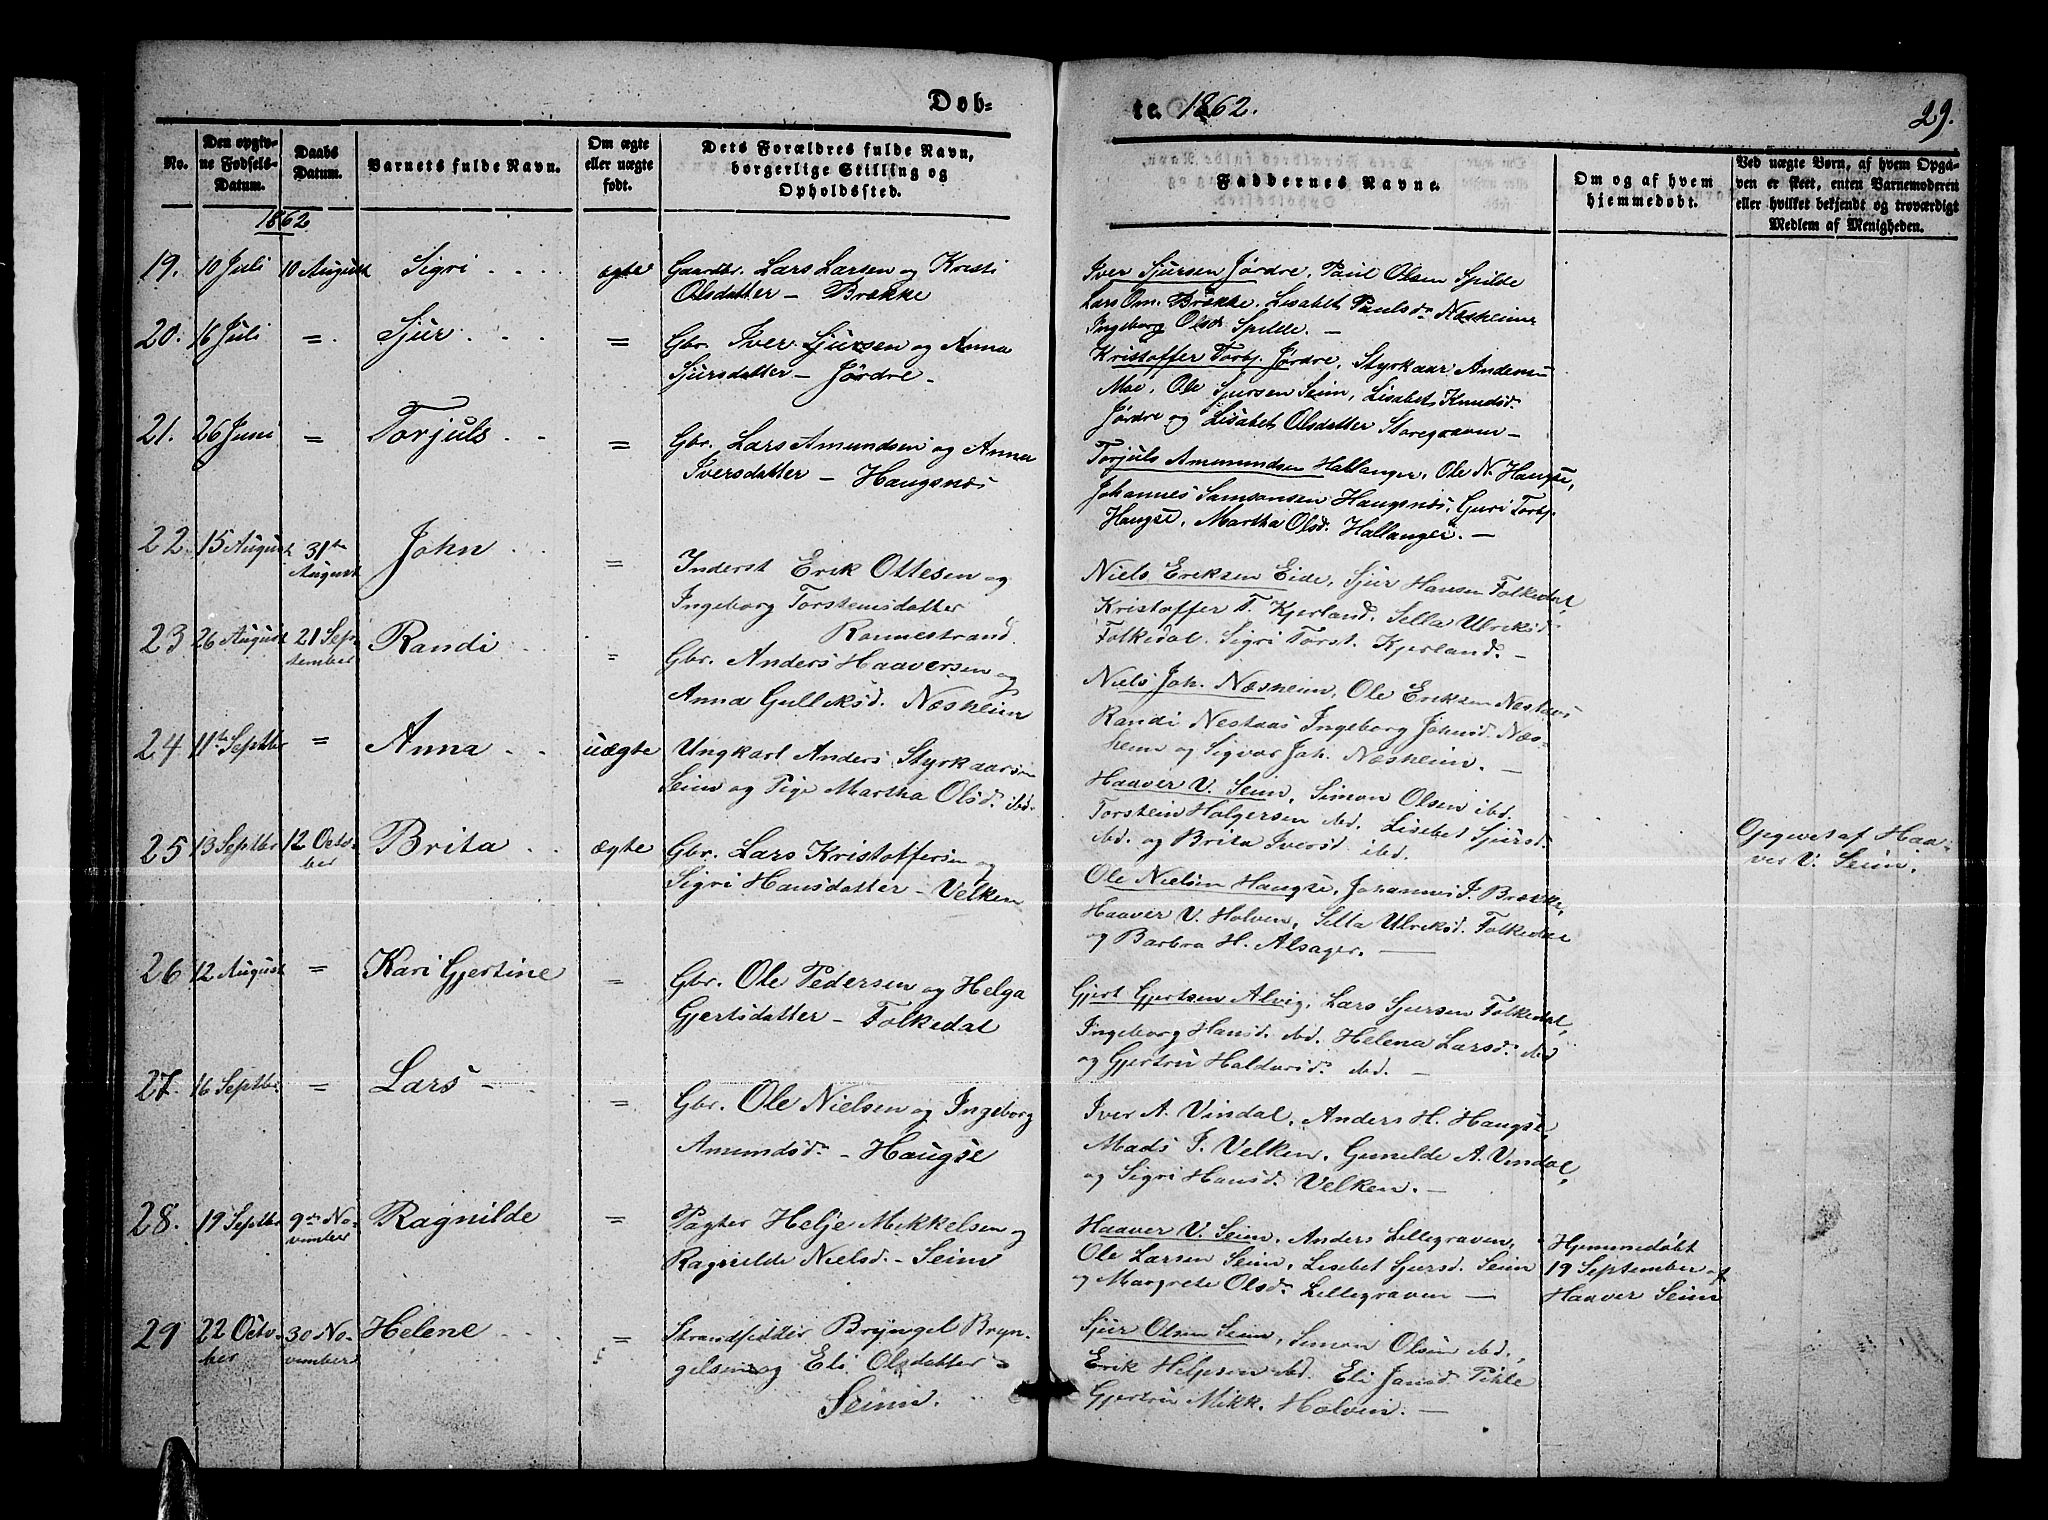 Døb-
te 1862.
29.
No.
Den opgiv-
ne Fødsels-
Datum.
Daabs
Datum.
Barnets fulde Navn.
Om ægte
eller uægte
født.
Dets Forældres fulde Navn,
borgerlige Stilling og
Opholdssted.
Faddernes Navne.
Om og af hvem
hjemmedøbt.
Ved uægte Børn, af hvem Opga-
ven er skeet, enten Barnemoderen
eller hvilket bekjendt og troværdigt
Medlem af Menigheden.
1862
19. 10 Juli 10 August Sigri ægte Gaardbr. Lars Larsen og Kristi
Olsdatter - Brække
Iver Sjursen Jørdre, Paul Olsen Spilde
Lars Om. Brække. Lisabet Paulsdr Næsheim
Ingeborg Olsdr Spilde. -
20. 16 Juli = Sjur = Gbr. Iver Sjursen og Anna
Sjursdatter - Jørdre -
Kristoffer Torbj. Jørdre, Styrkaar Andersen
Moe, Ole Sjursen Seim, Lisabet Knudsd.
Jørdre og Lisabet Olsdatter Storegraven -
21. 26 Juni = Torjuls = Gbr. Lars Amundsen og Anna
Iversdatter - Haugsnæs
Torjuls Amumundsen Hallanger, Ole N. Haugse,
Johannes Samsonsen Haugsnæs, Guri Torbj.
Haugse, Martha Olsd. Hallanger. -
22. 15 August 31te
August John = Inderst Erik Ottesen og
Ingeborg Torsteinsdatter
Ronnestrand.
Niels Eriksen Eide, Sjur Hansen Folkedal
Kristoffer T. Kjerland, Sella Ulriksd.
Folkedal. Sigri Torst. Kjerland. -
23 26 August 21 Sep-
tember Randi = Gbr. Anders Haaversen og
Anna Gulleksd. Næsheim
Niels Joh. Næsheim, Ole Eriksen Nestaas
Randi Nestaas Ingeborg Johnsd. Næs-
heim og Sigvor Joh. Næsheim. -
24 11te Septbr = Anna uægte Ungkarl Anders Styrkaarsen
Seim og Pige Martha Olsd. ibd.
Haaver V. Seim, Simon Olsen ibd.
Torstein Holgersen ibd. Lisebet Sjursd.
ibd. og Brita Iversd ibd.
Opgivet af Haa-
ver V. Seim.
25 13 Septbr 12 Octo-
ber Brita ægte Gbr. Lars Kristoffersen og
Sigri Hansdatter - Velken
Ole Nielsen Haugse, Johannes J. Brække,
Haaver V. Holven, Sella Ulriksd. Folkedal
og Barbra H. Alsager. -
26 12 August = Kari Gjertine = Gbr. Ole Pedersen og Helga
Gjertsdatter - Folkedal
Gjert Gjertsen Alvig, Lars Sjursen Folkedal,
Ingeborg Hansd. ibd. Helena Larsd. ibd
og Gjertru Haldorsd. ibd. -
27. 16 Septbr. = Lars - = Gbr. Ole Nielsen og Ingeborg
Amundsdr - Haugse
Iver A. Vindal, Anders H. Haugse,
Mads J. Velken, Gunilde A. Vindal,
og Sigri Hansd. Velken. -
28. 19 Septbr 9de No-
vember Ragnilde = Pagter Helje Mikkelsen og
Ragnilde Nielsd. - Seim
Haaver V. Seim, Anders Lillegraven,
Ole Larsen Seim, Lisebet Sjursd. Seim
og Margrete Olsdr Lillegraven -
Hjemmedøbt
19 September af
Haaver Seim
29 22 Octo-
ber 30 No-
vember Helene = Strandsidder Bryngel Bryn-
gelsen og Eli Olsdatter
Seim.
Sjur Olsen Seim, Simon Olsen ibd,
Erik Heljesen ibd. Eli Jansd.
Gjertru Mikk. Holven. -